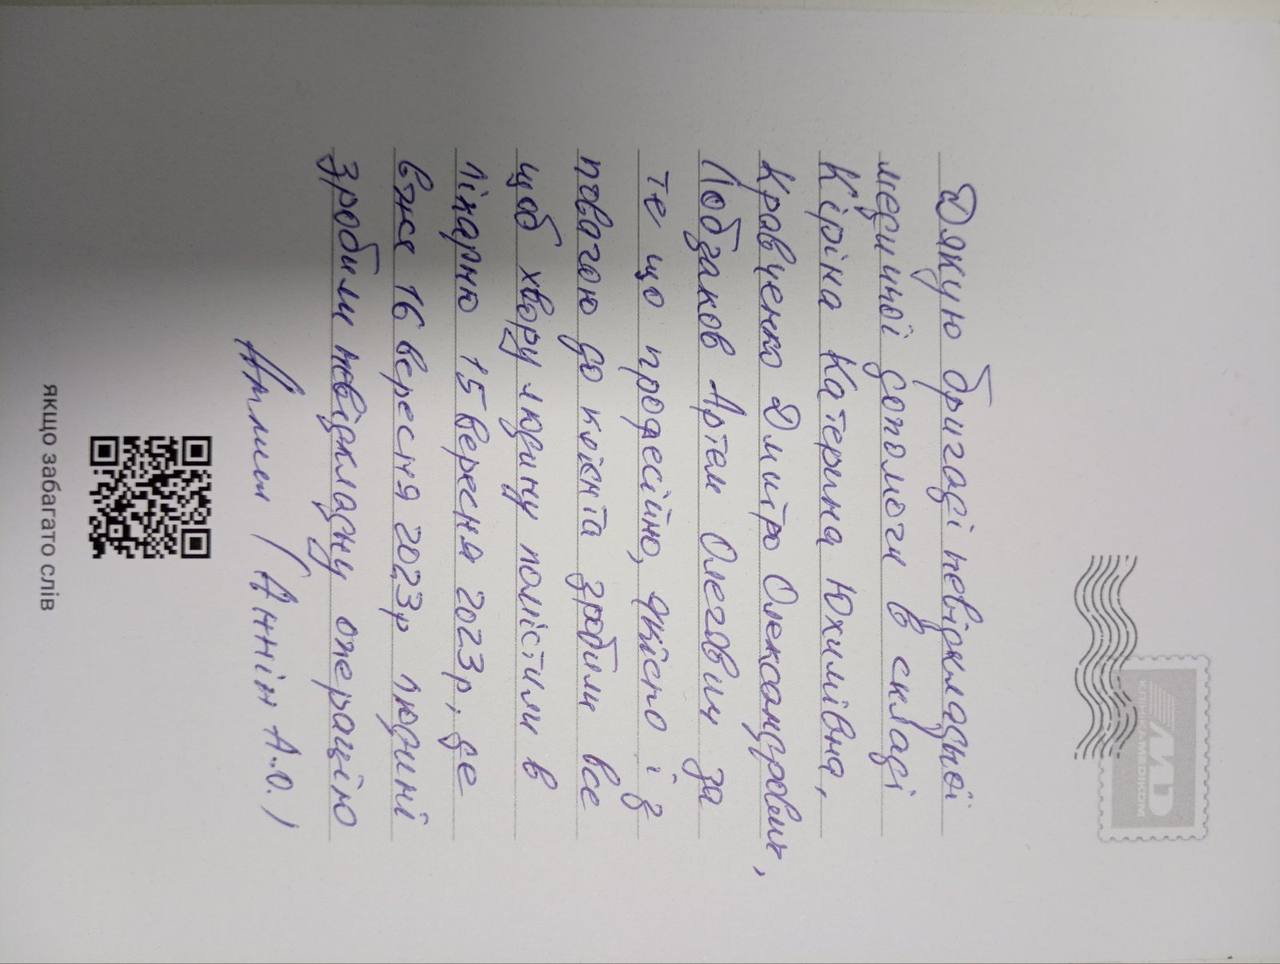 Дякую бригаді невідкладної
медичної допомоги в складі
Кіріна Катерина Юхимівна,
Кравченко Дмитро Олександрович,
Лобзаков Артем Олегович за
те що професійно, якісно і з
повагою до клієнта зробили все
щоб хвору людину помістили в
лікарню 15 вересня 2023р, де
вже 16 вересня 2023р людині
зробили невідкладну операцію
(Аннін А.О.)
якщо забагато слів